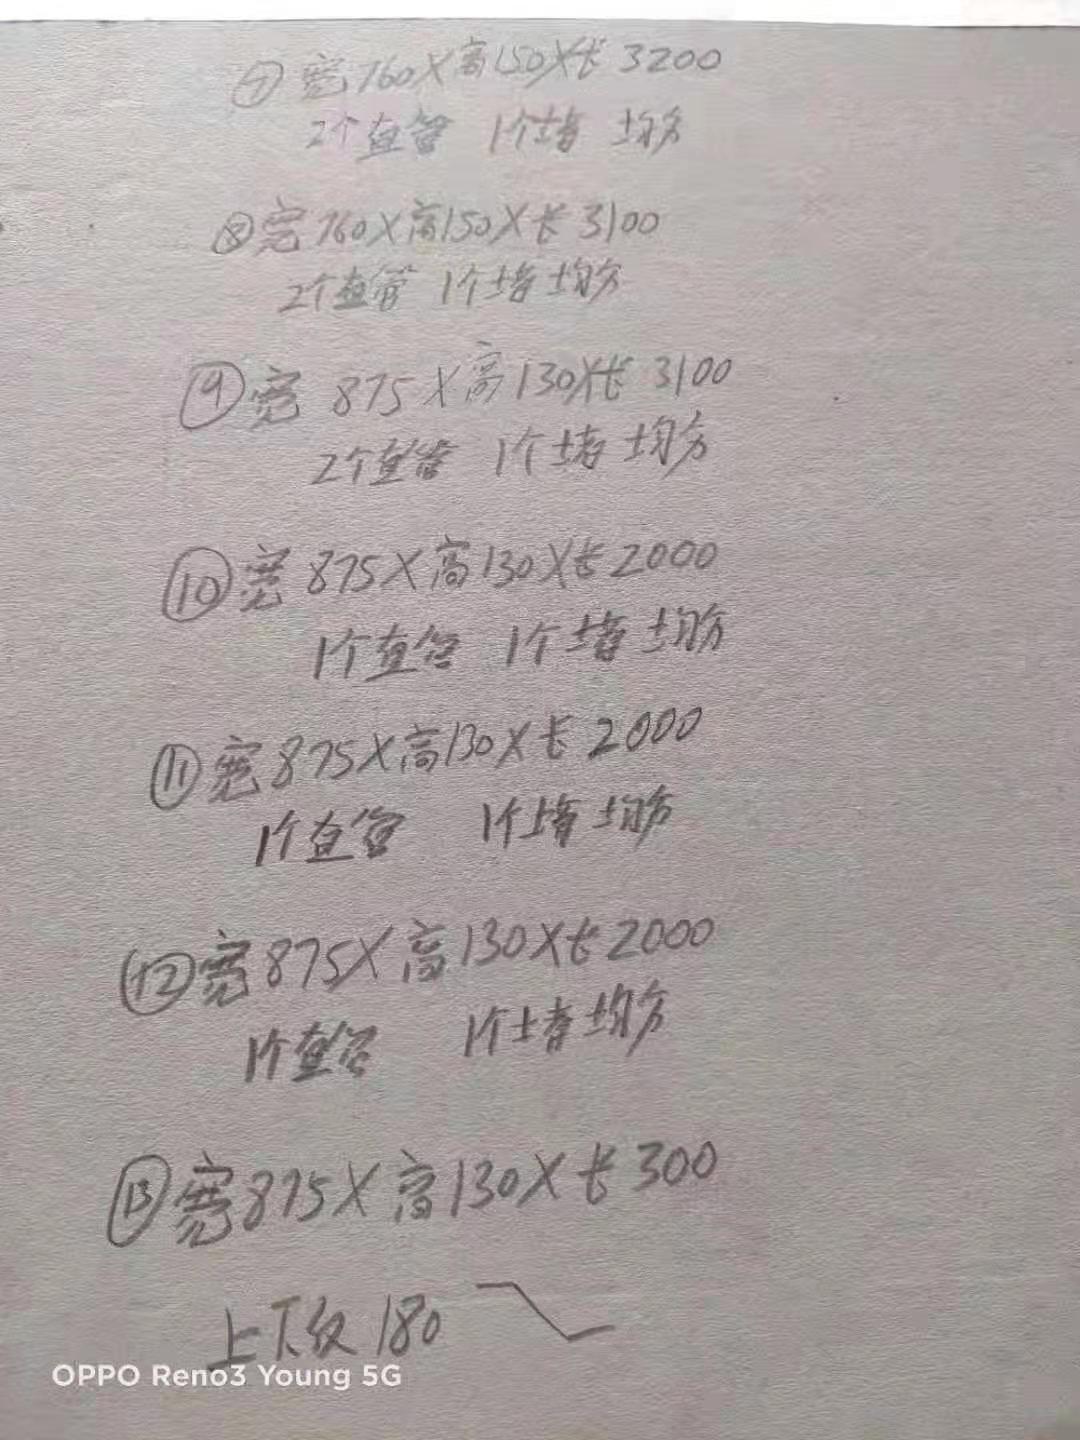 ⑦宽760X高150X长3200
2个直管 1个堵 均分
⑧宽760X高150X长3100
2个直管 1个堵 均分
⑨宽 875X高130X长3100
2个直管 1个堵 均分
⑩宽875X高130X长2000
1个直管 1个堵 均分
⑪宽875X高130X长2000
1个直管 1个堵 均分
⑫宽875X高130X长2000
1个直管 1个堵 均分
⑬宽875X高130X长300
上下 180
OPPO Reno3 Young 5G